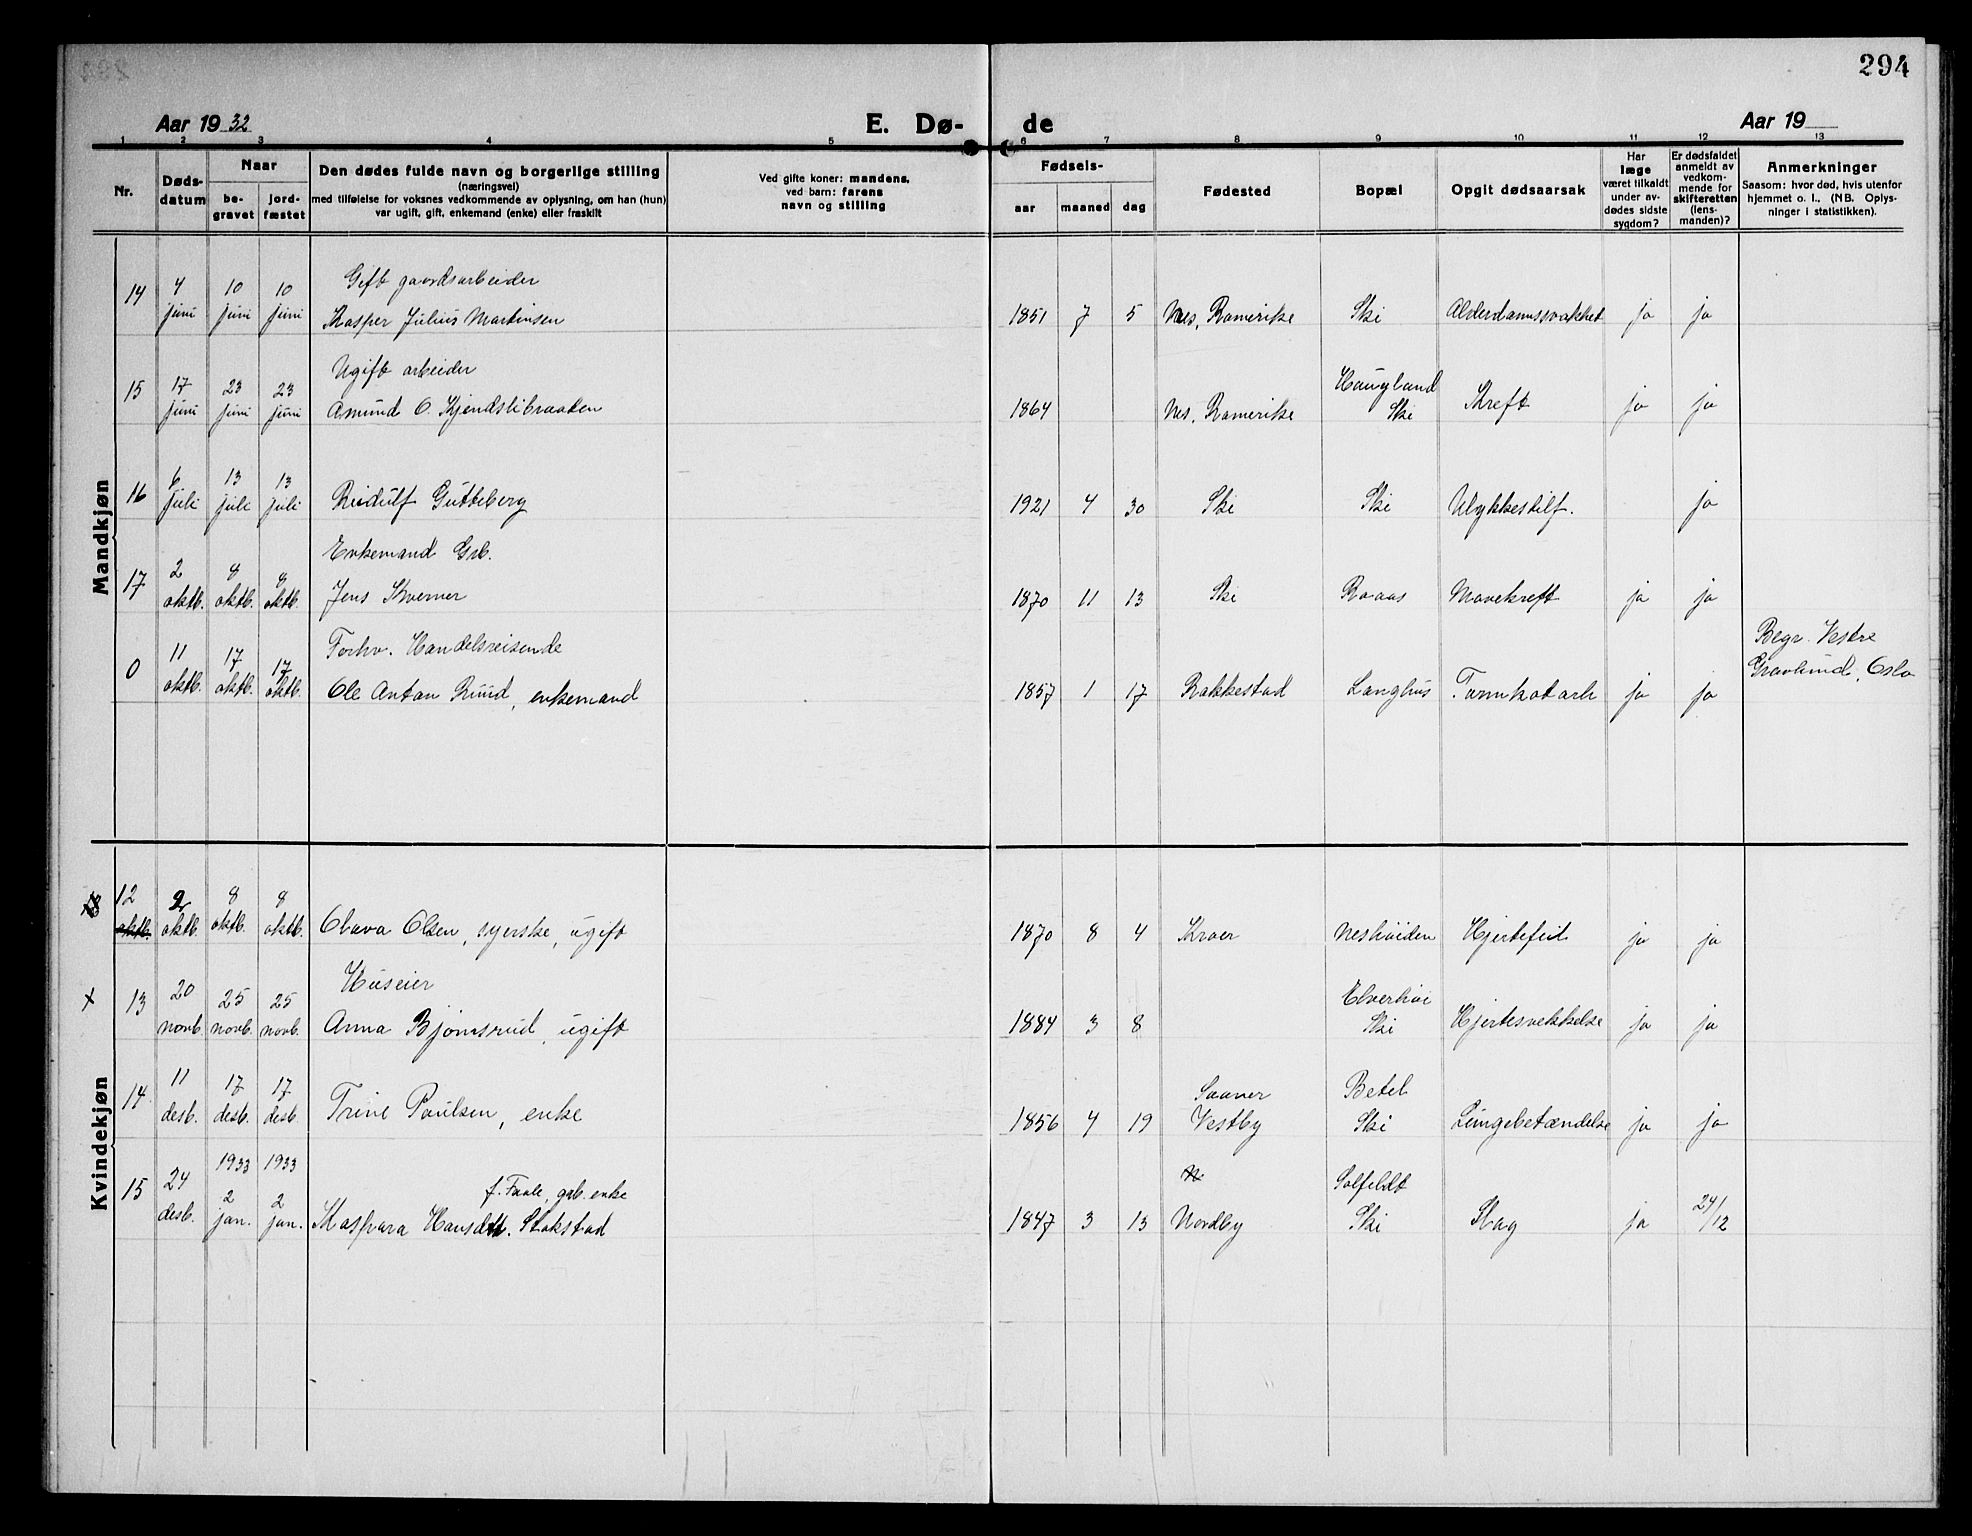 294
Aar 19 32
E. Dø-
de
Aar 19
1 2 3 4 5 6 7 8 9 10 11 12 13
Nr.
Døds-
datum
Naar
be-
gravet
jord-
fæstet
Den dødes fulde navn og borgerlige stilling
(næringsvei)
med tilføielse for voksnes vedkommende av oplysning, om han (hun)
var ugift, gift, enkemand (enke) eller fraskilt
Ved gifte koner: mandens,
ved barn: farens
navn og stilling
Fødsels-
aar maaned dag
Fødested
Bopæl
Opgit dødsaarsak
Har
læge
været tilkaldt
under av-
dødes sidste
sygdom?
Er dødsfaldet
anmeldt av
vedkom-
mende for
skifteretten
(lens-
manden)?
Anmerkninger
Saasom: hvor død, hvis utenfor
hjemmet o. l.. (NB. Oplys-
ninger i statistikken).
Mandkjøn
Gift gaardsarbeider
14 4 juni 10 juni 10 juni Kasper Julius Martinsen 1851 7 5 Nes, Romerike Ski Alderdomssvakhet ja ja
Ugift arbeider Haugland
15 17 juni 23 juni 23 juni Amund O. Kjendslibraaten 1864 Nes, Romerike Ski Kreft ja ja
16 6 juli 13 juli 13 juli Reidulf Gutteberg 1921 4 30 Ski Ski Ulykkestilf. ja
Enkemand Grb.
17 2 oktb. 8 oktb. 8 oktb. Jens Kverner 1870 11 13 Ski Roaas Mavekreft ja ja
Forhv. Handelsreisende Begr. Vestre
0 11 oktb. 17 oktb. 17 oktb. Ole Anton Ruud, enkemand 1857 1 17 Rakkestad Langhus Tarmkatarh ja ja Gravlund, Oslo
Kvindekjøn
12 oktb. 2 oktb. 8 oktb. 8 oktb. Olava Olsen, syerske, ugift 1870 8 4 Kroer Neshöiden Hjertefeil ja ja
Huseier Elverhöi
x 13 20 novb. 25 novb. 25 novb. Anna Bjørnsrud, ugift 1884 3 8 Ski Hjertesvekkelse ja ja
Saaner Betel
14 11 desb. 17 desb. 17 desb. Trine Paulsen, enke 1856 4 19 Vestby Ski Lungebetændelse ja ja
1933 1933 f. Faale, grb. enke N Solfeldt
15 24 desb. 2 jan. 2 jan. Kaspara Hansdtt. Stokstad 1847 3 13 Nordby Ski Slag ja 24/12